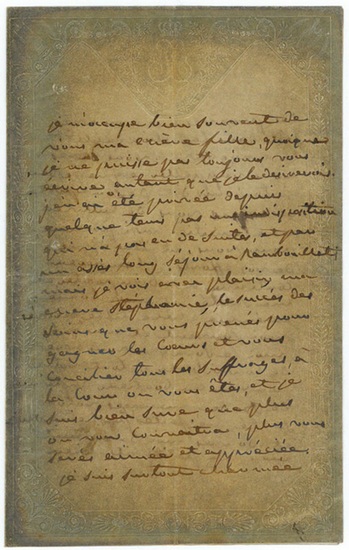 je m'occupe bien souvent de
vous ma chère fille, quoique
je ne puisse pas toujours vous
écrire autant que je le desirerois.
j'en ai été privée depuis
quelque tems par indisposition
qui n'a pas eu de suites, et par
un assés long séjour à Rambouillet
mais je vois avec plaisir ma
chere Stéphanie, le succès des
que vous prenés pour
gagner les Cœurs et vous
Concilier tous les Suffrages à
la Cour où vous êtes, et je
suis bien sure que plus
on vous Connoitra, plus vous
serés aimée et appréciée.
je suis surtout charmée